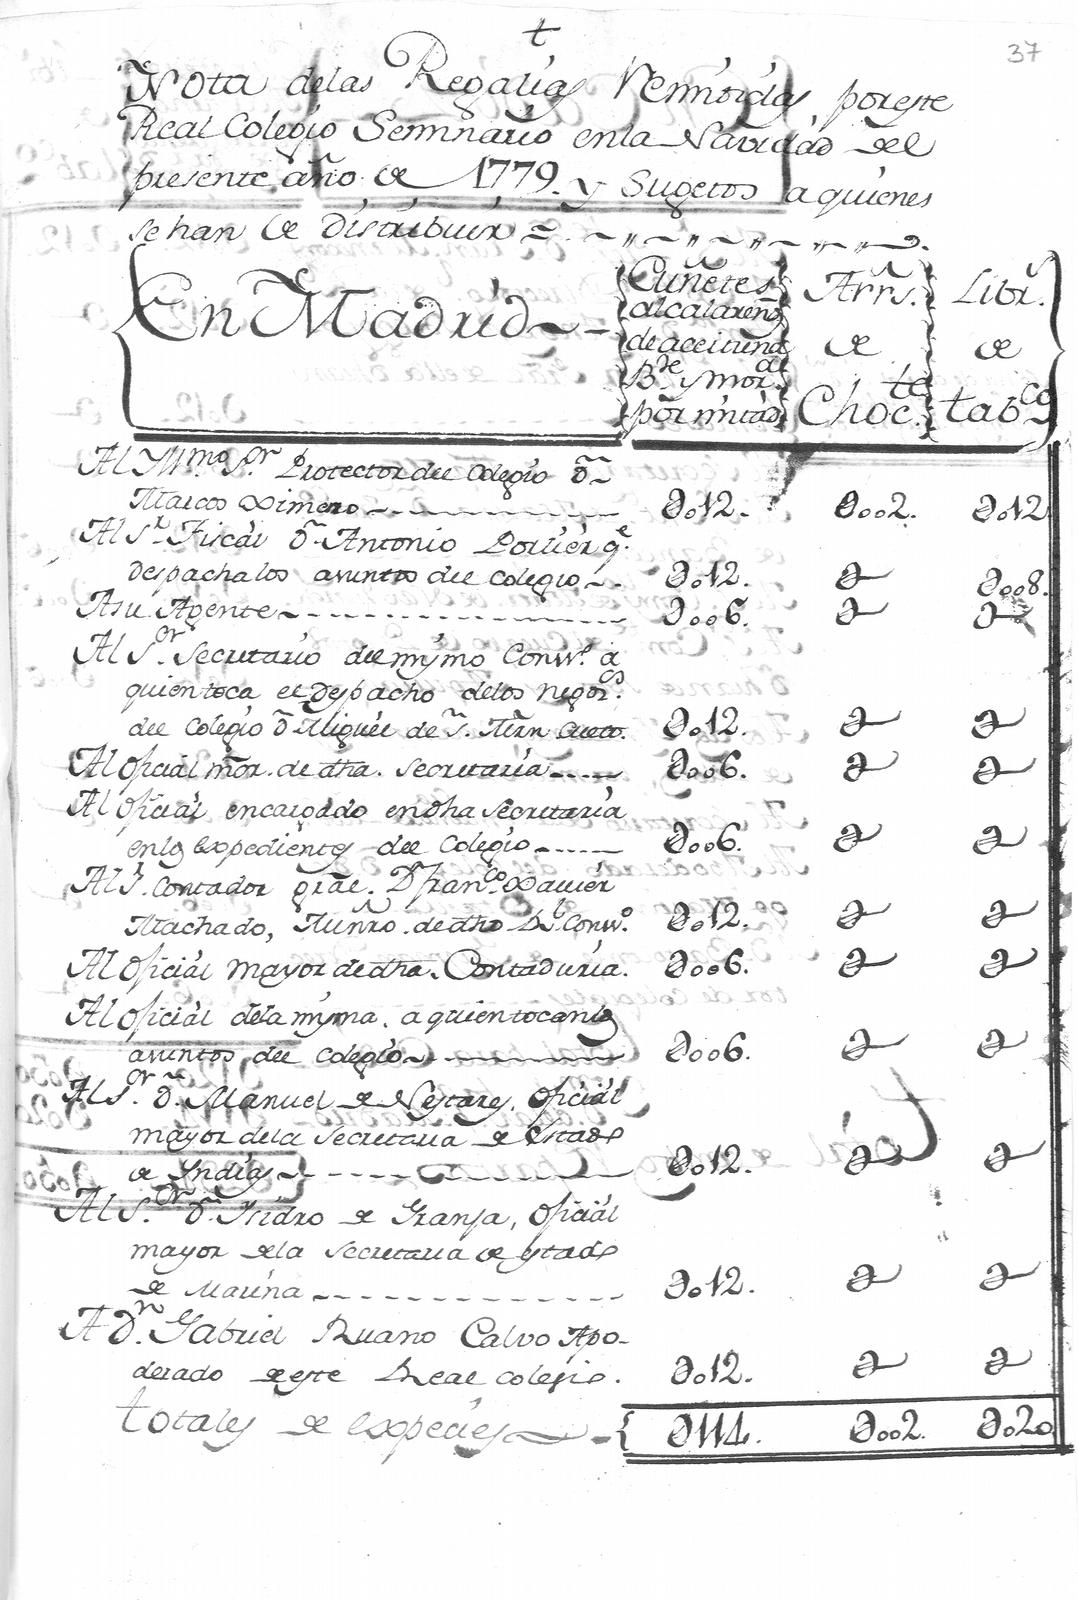 t
37
Nota delas Regalias Remitidas por este
Real Colegio Seminario en la Navidad del
presente año de 1779. y Sugetos a quienes
se han de Distribuir =
En Madrid
Cuñetes alcalareñs de aceituna Rl. y mor. por mitad
Arrs. de Chocte.
Libs. de tabco
Al Yllmo Sor Protector del Colegio Dn
Marcos Ximeno 012. 0002. 012
Al Sr. Fiscal Dn Antonio Porlier qe.
despacha los asuntos del colegio 012. 0 0008.
A su Agente 0006. 0 0
Al Sor. Secretario del mismo Consejo a
quien toca el Despacho delos negocs.
del Colegio Dn Miguel de Sn. Mrn Cueto. 012. 0 0
Al oficial mor. de dha. Secretaria 0006. 0 0
Al oficial encargado en dha Secretaria
en ls expedientes del Colegio 0006. 0 0
Al Sr. Contador gral. Dn Franco. Xavier
Machado, Munro. de dho Rl. Conso. 012. 0 0
Al oficial mayor de dha. Contaduria. 0006. 0 0
Al oficial dela misma. a quien tocan ls
asuntos del Colegio 0006. 0 0
Al Sor. Dn. Manuel de Nestares, oficial
mayor dela Secretaria de Estado
de Indias 012. 0 0
Al Sor. Dn Isidro de Granja, oficial
mayor dela Secretaria de estado
de Marina 012. 0 0
A Dn. Gabriel Ruano Calvo Apo-
derado de este Real Colegio. 012. 0 0
totales de expecies 0114. 0002. 020